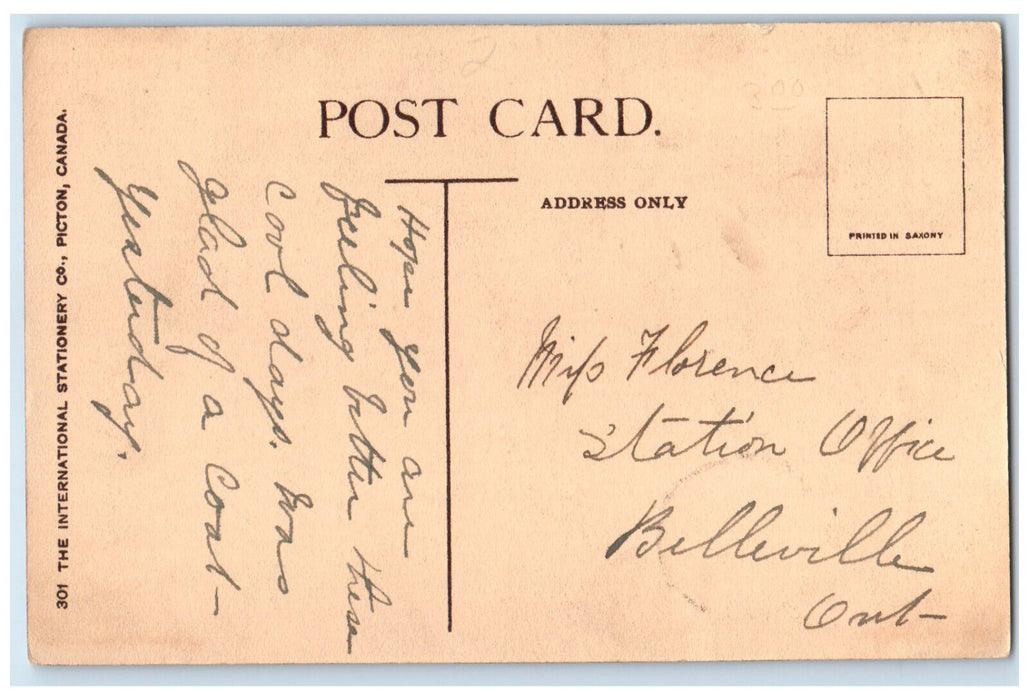 POST CARD.
ADDRESS ONLY
PRINTED IN SAXONY
301 THE INTERNATIONAL STATIONERY CO., PICTON, CANADA.
Hope you are
feeling better these
cool days. Was
glad of a coat
yesterday.
Miss Florence
Station Office
Belleville
Ont
300